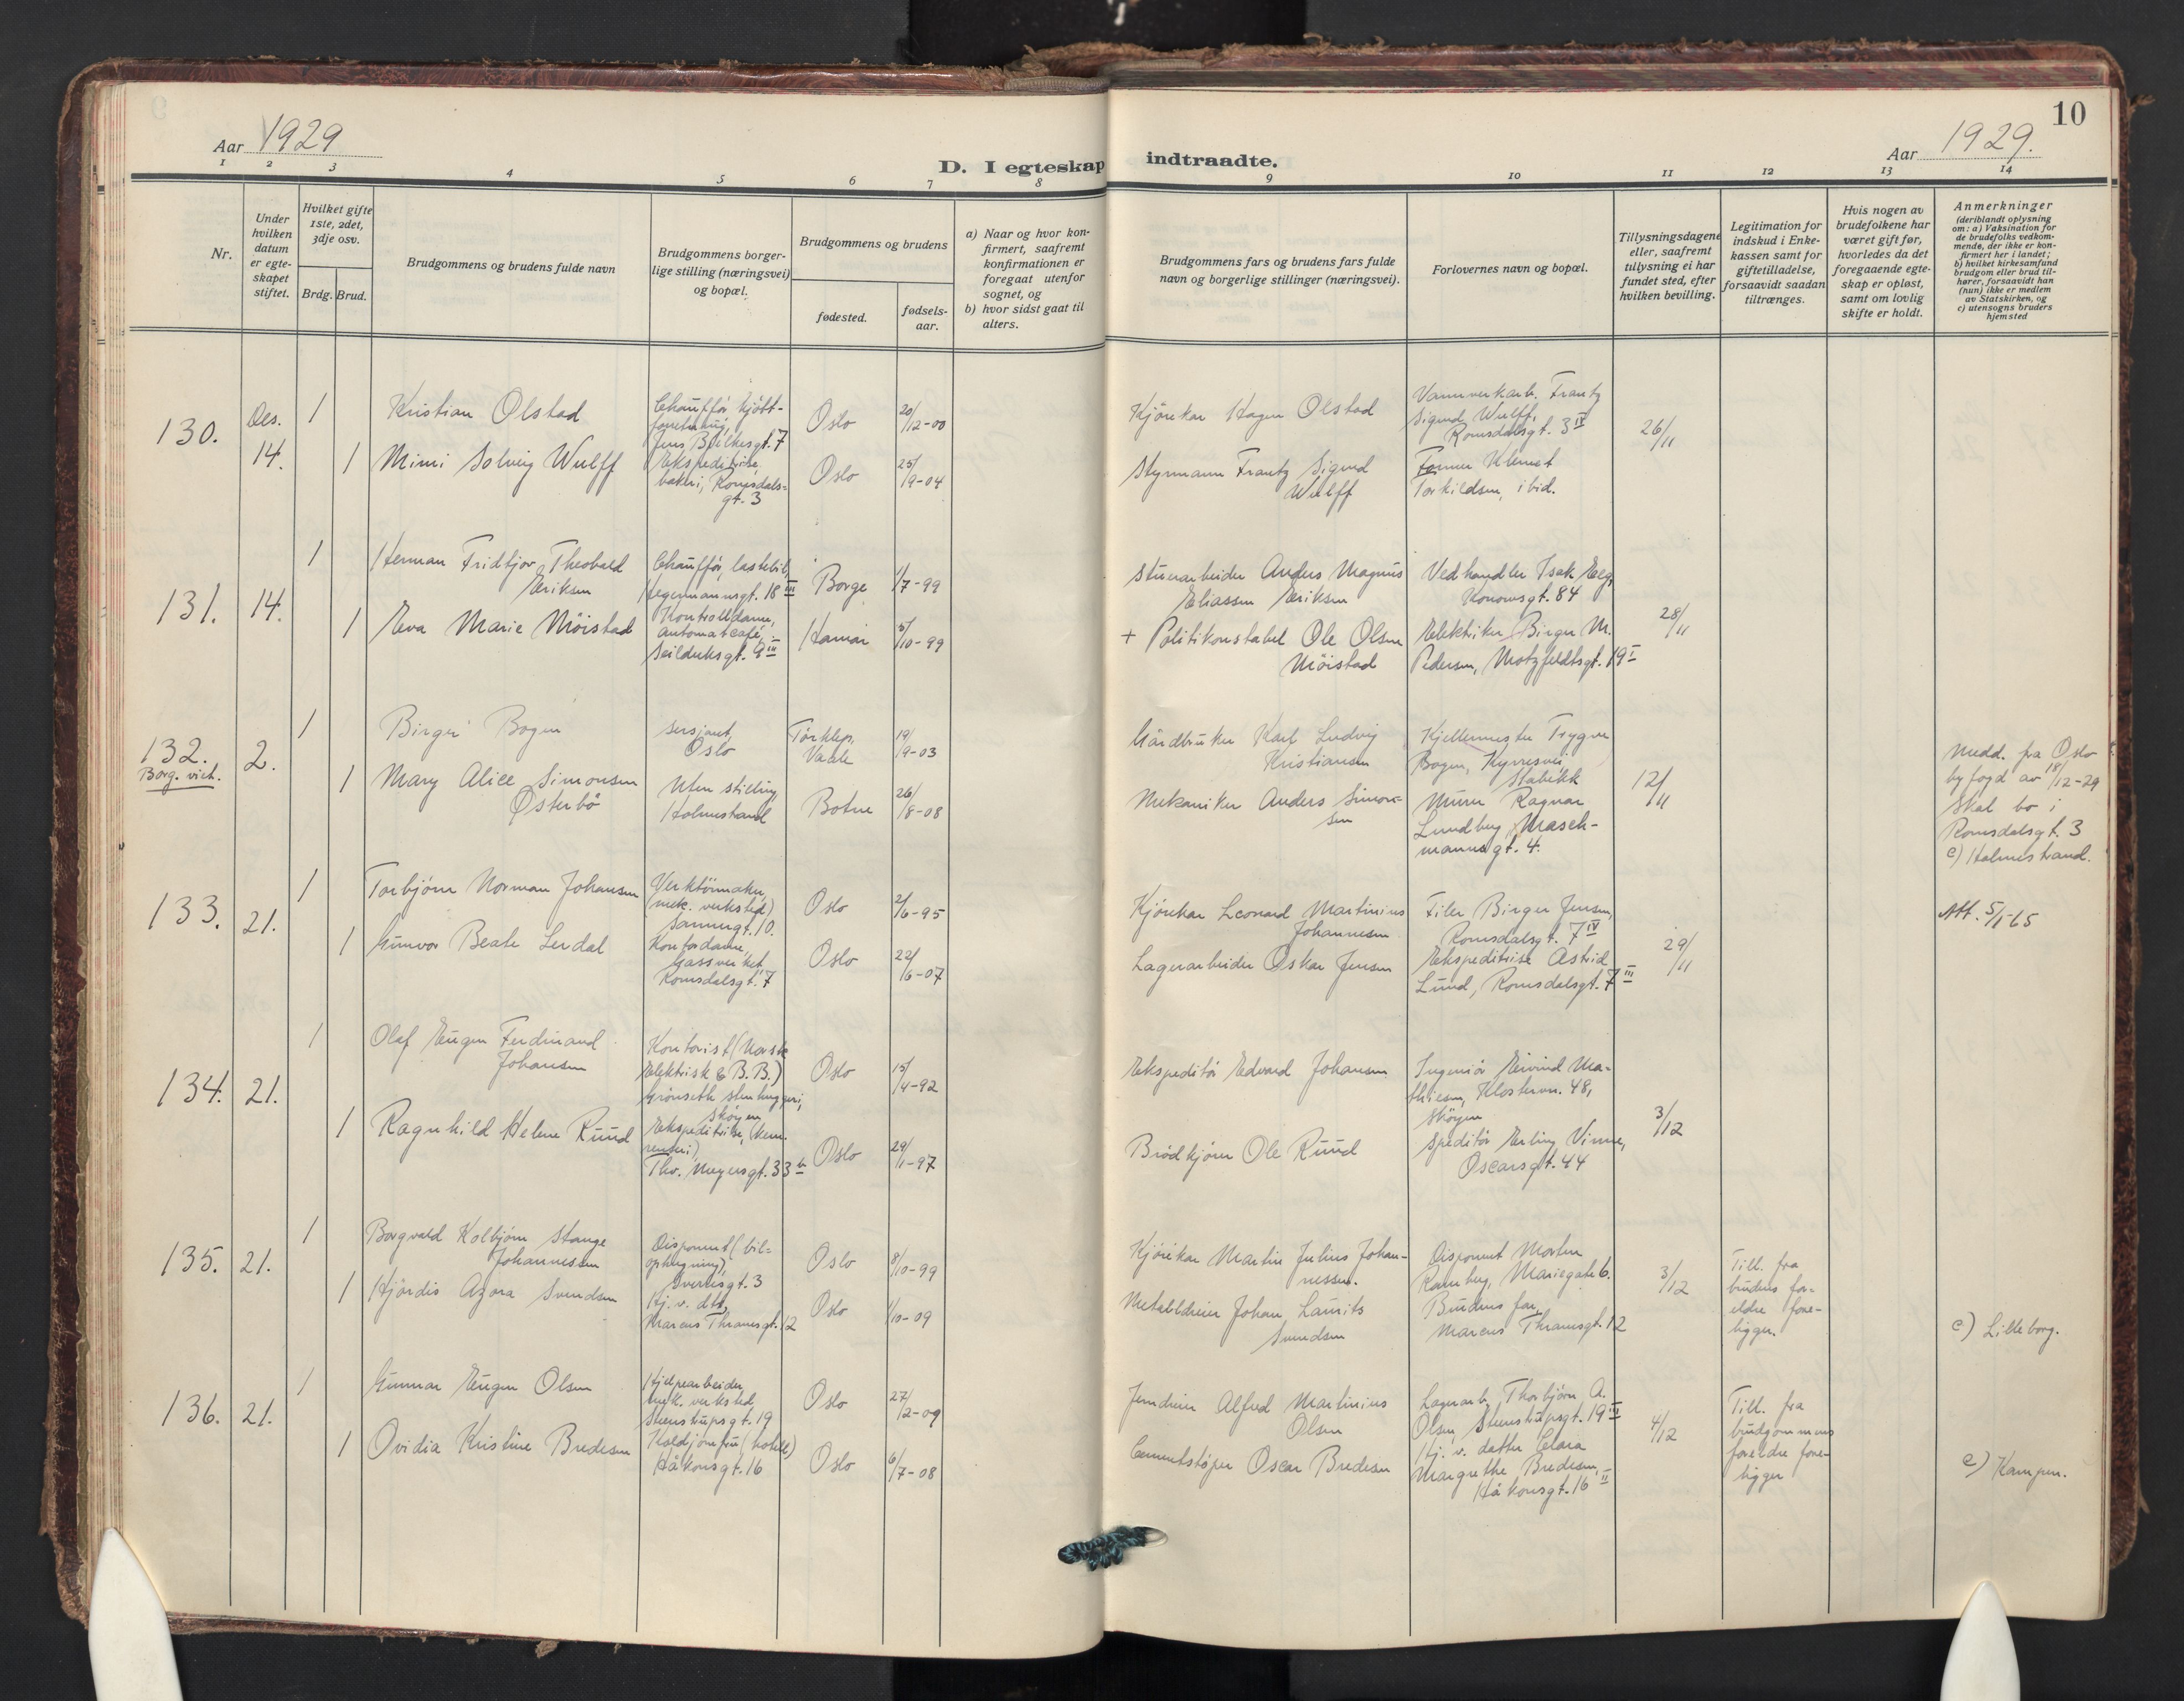 10
Aar 1929
D. I egteskap indtraadte.
Aar 1929.
1 2 3 4 5 6 7 8 9 10 11 12 13 14
Nr.
Under
hvilken
datum
er egte-
skapet
stiftet.
Hvilket gifte
1ste, 2det,
3dje osv.
Brdg. Brud.
Brudgommens og brudens fulde navn
Brudgommens borger-
lige stilling (næringsvei)
og bopæl.
Brudgommens og brudens
fødested.
fødsels-
aar.
a) Naar og hvor kon-
firmert, saafremt
konfirmationen er
foregaat utenfor
sognet, og
b) hvor sidst gaat til
alters.
Brudgommens fars og brudens fars fulde
navn og borgerlige stillinger (næringsvei).
Forlovernes navn og bopæl.
Tillysningsdagene
eller, saafremt
tillysning ei har
fundet sted, efter
hvilken bevilling.
Legitimation for
indskud i Enke-
kassen samt for
giftetilladelse,
forsaavidt saadan
tiltrænges.
Hvis nogen av
brudefolkene har
været gift før,
hvorledes da det
foregaaende egte-
skap er opløst,
samt om lovlig
skifte er holdt.
Anmerkninger
(deriblandt oplysning
om: a) Vaksination for
de brudefolks vedkom-
mende, der ikke er kon-
firmert her i landet;
b) hvilket kirkesamfund
brudgom eller brud til-
hører, forsaavidt han
(hun) ikke er medlem
av Statskirken, og
c) utensogns bruders
hjemsted
130.
Des.
14.
1
Kristian Olstad
Chauffør, kjøtt-
forretning,
Jens Bjelkesgt. 7
Oslo
20/12-00
Kjørekar Hagen Olstad
Vannverkarb. Frantz
Sigurd Wulff,
Romsdalsgt. 3 IV
26/11
1
Mimi Solveig Wulff
Ekspeditrise,
bakeri, Romsdals-
gt. 3
Oslo
25/9-04
Styrmann Frantz Sigurd
Wulff
Former Klemet
Torkildsen, ibid.
131.
14.
1
Herman Fridtjov Theobald
Eriksen
Chauffør, lastebil,
Hegermannsgt. 18 III
Borge
1/7-99
Stuerarbeider Anders Magnus
Eliassen Eriksen
Vedhandler Isak Eeg,
Konowsgt. 84
28/11
1
Eva Marie Möistad
Kontrolldame,
Automatcafé,
Seilduksgt. 9 III
Hamar
5/10-99
+ Politikonstabel Ole Olsen
Möistad
Elektriker Birger M.
Pedersen, Motzfeldtsgt. 19 I
132.
Borg. viet.
2.
1
Birger Bogen
Sersjant,
Oslo
Vaale
19/9-03
Gårdbruker Karl Ludvig
Kristiansen
Kjellermester Trygve
Bogen,
Stabekk
12/11
1
Mary Alice Simonsen
Østerbö
Uten stilling
Holmestrand
Botne
26/8-08
Mekaniker Anders Simon-
sen
Murer Ragnar
Lundberg, Masch-
mannsgt. 4.
Medd. fra Oslo
byfogd av 18/12-29
Skal bo i
Romsdalsgt. 3
c) Holmestrand.
133.
21.
1
Torbjörn Norman Johansen
Verktöimaker,
(mek. verksted)
Sannergt. 10.
Oslo
2/6-95
Kjörekar Leonard Martinius
Johannesen
Filer Birger Jensen,
Romsdalsgt. 7 IV
29/11
Att. 5/1-65
1
Gunvor Beate Lerdal
Kontordame,
Gassverket
Romsdalsgt. 7
Oslo
22/6-07
Lagerarbeider Oskar Jensen
Ekspeditrise Astrid
Lund, Romsdalsgt. 7 III
134.
21.
1
Olaf Eugen Ferdinand
Johansen
Kontorist (Norsk
Elektrisk & B.B.)
Skøyen
Oslo
15/4-92
Ekspeditör Edvard Johansen
Ingeniör Eivind Ma-
thiesen, Klostervn. 48,
Skøyen
3/12
1
Ragnhild Helene Ruud
Ekspeditrise, (kem.
renseri)
Thv. Meyersgt. 33 b
Oslo
29/1-97
Brödkjörer Ole Ruud
Speditör Erling Vinne,
Oscarsgt. 44
135.
21.
1
Borgvald Kolbjörn Stange
Johannessen
Disponent (bil-
ophugning),
Sverresgt. 3
Oslo
8/10-99
Kjörekar Martin Julius Johan-
nessen.
Disponent Morten
Ramberg, Mariegate 6.
3/12
Till. fra
brudens for-
eldre fore-
ligger.
1
Hjördis Agora Svendsen
Hj. v. dtr.,
Marcus Thranesgt. 12
Oslo
1/10-09
Metalldreier Johan Laurits
Svendsen
Brudens far,
Marcus Thranesgt. 12
c) Lilleborg.
136.
21.
1
Gunnar Eugen Olsen
Hjelpearbeider
mek. verksted
Steenstrupsgt. 19
Oslo
27/2-09
Jerndreier Alfred Martinius
Olsen
Lagerarb. Thorbjörn A.
Olsen, Steenstrupsgt. 19 III
4/12
Till. fra
brudgommens
foreldre fore-
ligger
1
Ovidia Kristine Bredesen
Koldjomfru (hotell)
Håkonsgt. 16
Oslo
6/7-08
Cementstöper Oscar Bredesen
Hj. v. datter Clara
Margrethe Bredesen,
Håkonsgt. 16 II
c) Kampen.